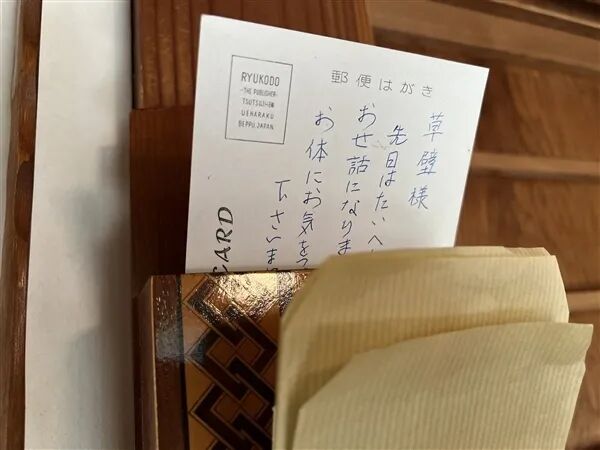 RYUKODO
-THE PUBLISHER-
TSUTSUI-EN
UEHARAKU
BEPPU, JAPAN
郵便はがき
草壁様
先日はたいへん
おせ話になりま
お体にお気をつ
下さいませ
CARD